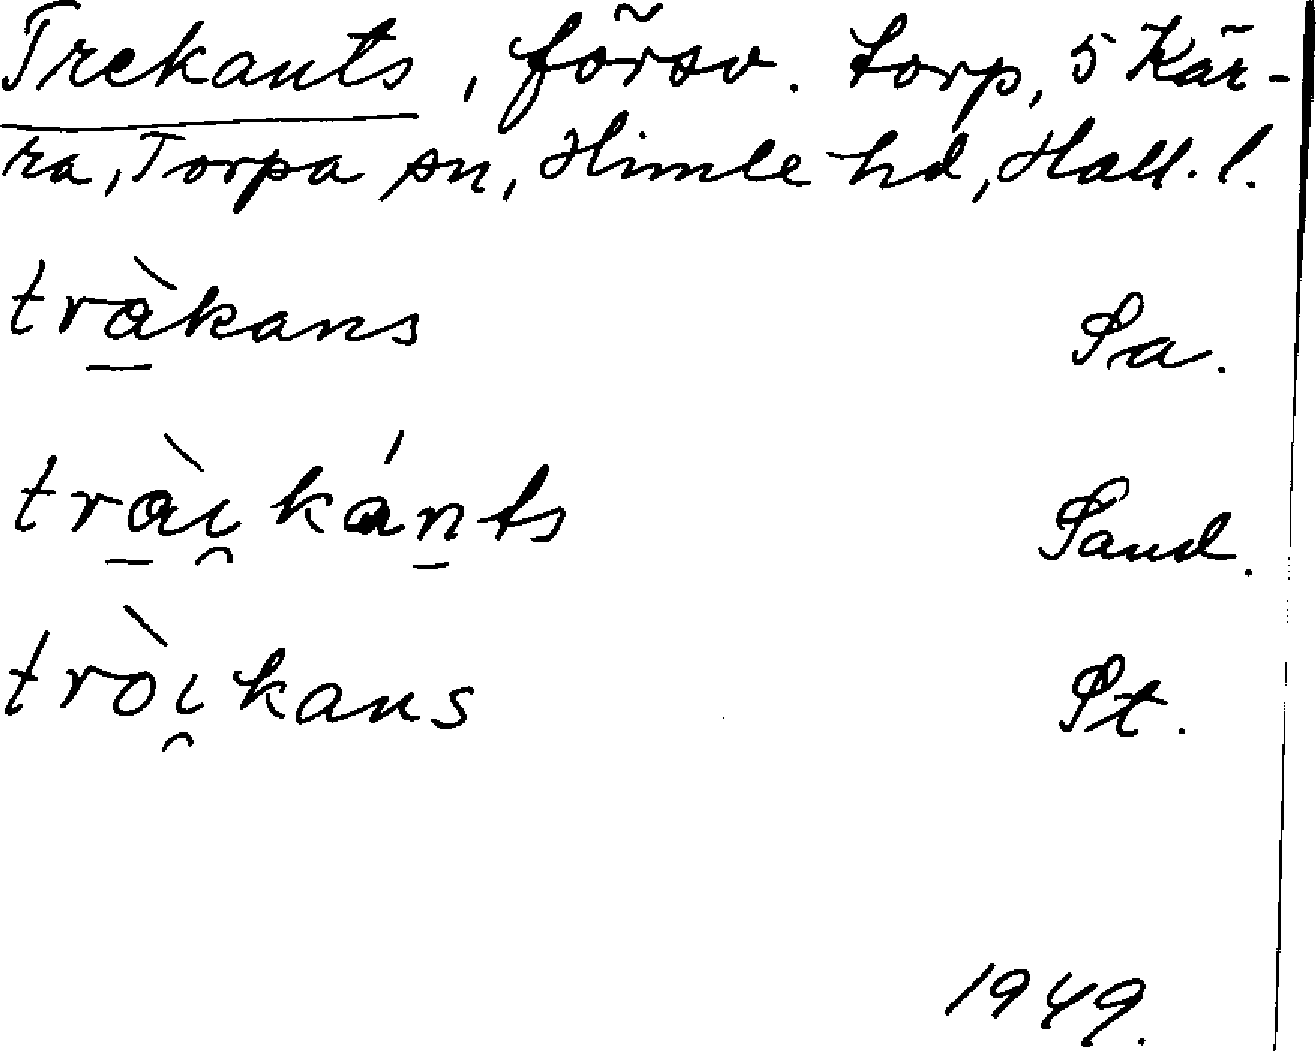 Trekants, försv. torp, 5 Kär-
ra, Torpa sn, Himle hd, Hall. l.
trа̱̀kans Sa.
trа̱̀ı̯ kán̠ts Sand.
tròı̯kans St.
1949.